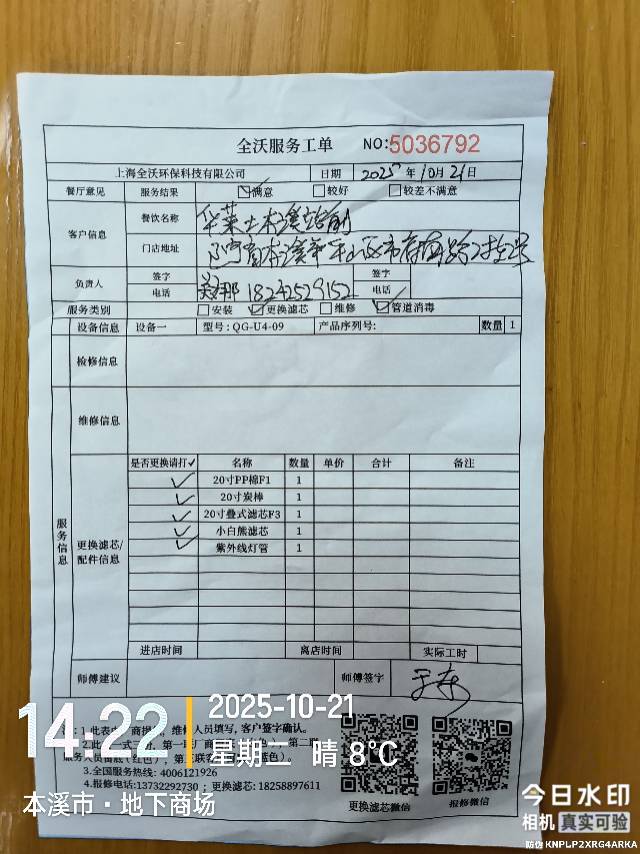 全沃服务工单 NO:5036792
上海全沃环保科技有限公司 日期 2025年10月21日
餐厅意见 服务结果 ☑满意 □较好 □较差不满意
客户信息 餐饮名称
门店地址
负责人 签字 签字
电话 18242529152 电话
服务类别 □安装 ☑更换滤芯 □维修 ☑管道消毒
设备信息 设备一 型号:QG-U4-09 产品序列号: 数量 1
检修信息
维修信息
服务信息
更换滤芯/配件信息
是否更换请打✓ 名称 数量 单价 合计 备注
✓ 20寸PP棉F1 1
✓ 20寸炭棒 1
✓ 20寸叠式滤芯F3 1
✓ 小白熊滤芯 1
✓ 紫外线灯管 1
进店时间 离店时间 实际工时
师傅建议 师傅签字
维修人员填写,客户签字确认。
3.全国服务热线: 4006121926
4.报修电话:13732292730 ; 更换滤芯: 18258897611
更换滤芯微信 报修微信
14:22
2025-10-21
星期二 晴 8℃
本溪市·地下商场
今日水印
相机 真实可验
防伪 KNPLP2XRG4ARKA